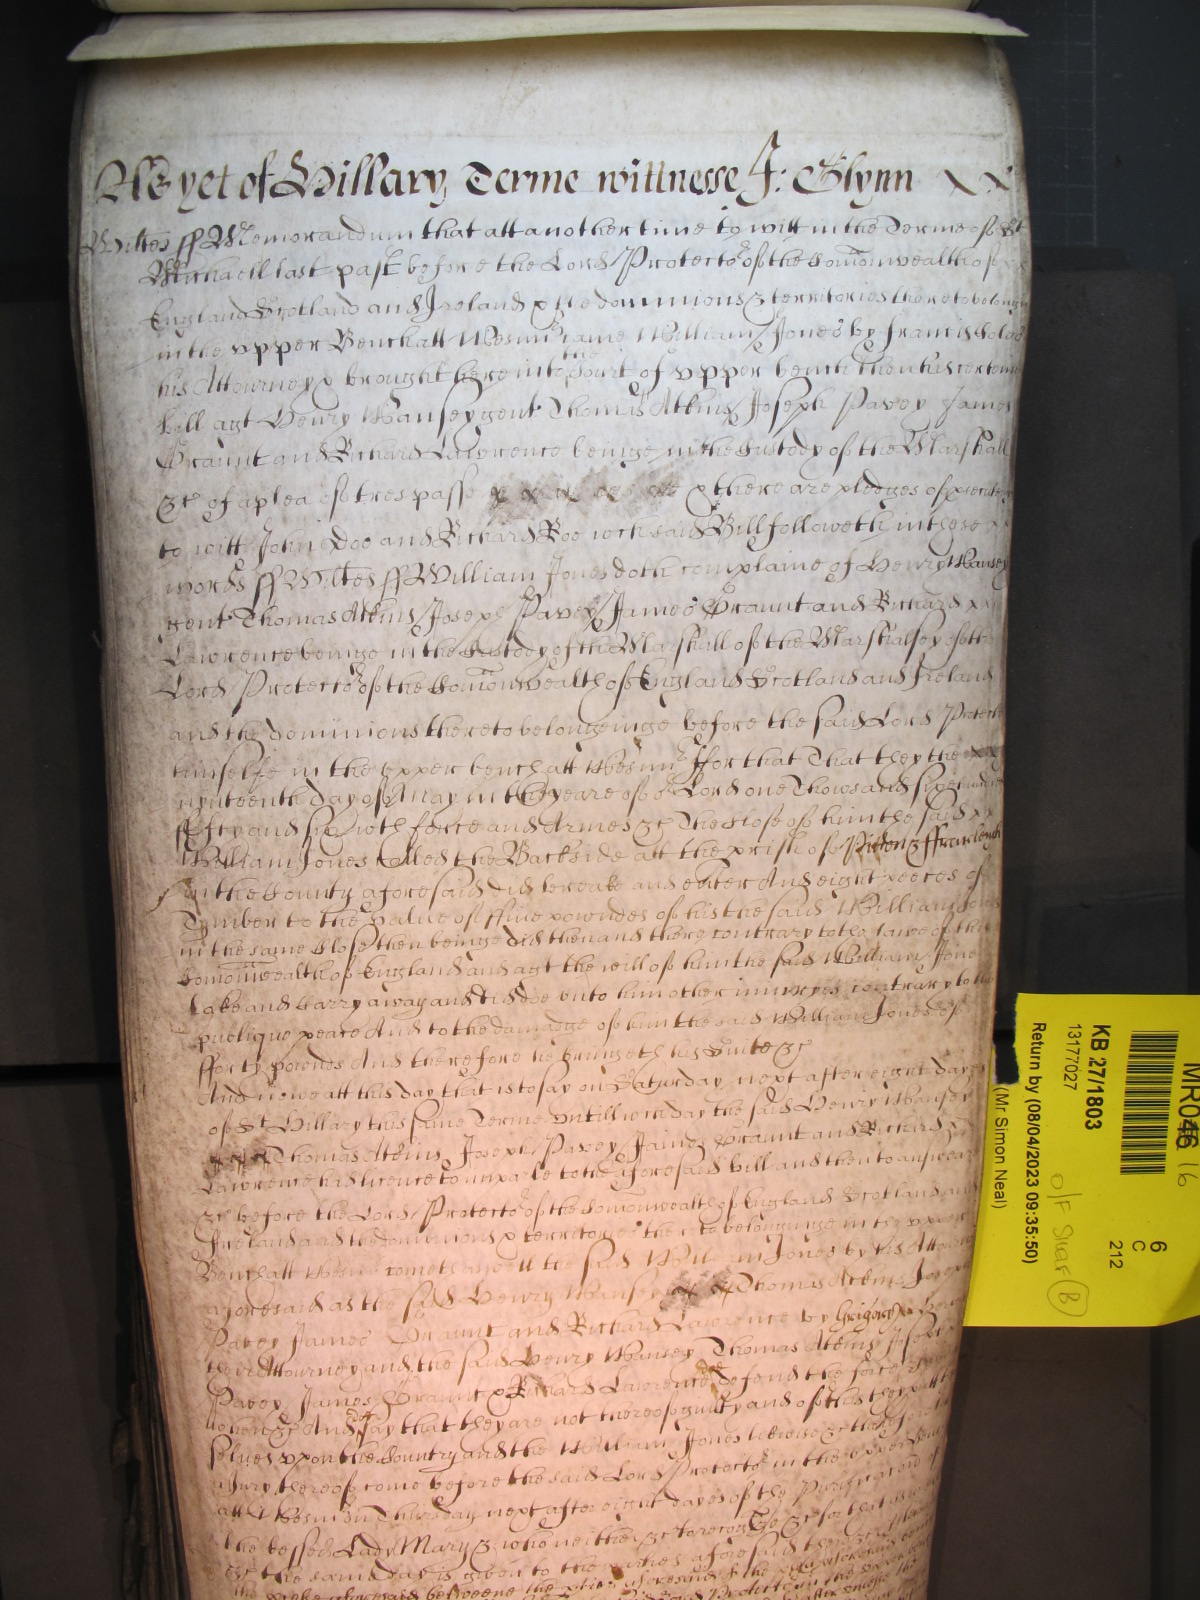 As yet of Hillary Terme wittnesse J: Glynn
Wiltes ss Memorandum that att another time to witt in the Terme of St
Michaell last past before the Lord Protector of the Comonwealth of
England Scotland and Ireland & the dominions & territories thereto belong
in the upper Bench att Westm came William Jones by Francis
his Attourney & brought here into the Court of upper bench then his certeine
bill agt Henry Wansey gent Thomas Atkins Joseph Pavey James
Graunt and Richard Lawrence beinge in the Custody of the Marshall
&c of a plea of trespasse & there are pledges of
to witt John Doe and Richard Roe wch said Bill followeth in these
words ss Wiltes ss William Jones doth complaine of Henry Wansey
gent Thomas Atkins Joseph Pavey James Graunt and Richard
Lawrence beinge in the Custody of the Marshall of the Marshalsey of the
Lord Protector of the Comonwealth of England Scotland and Ireland
and the dominions thereto belongeinge before the said Lord Protector
himselfe in the upper bench att Westm ffor that That they the
nynteenth day of May in the yeare of or Lord one Thowsand six hundred
ffifty and six with force and Armes &c The Close of him the said
William Jones called the Backside att the prish of Pitton & ffarleigh
in the County aforesaid did breake and enter And eight peeces of
Tymber to the value of ffive powndes of his the said William Jones
in the same Close then beinge did then and there contrary to the lawe of this
Comonwealth of England and agt the will of him the said William Jones
take and carry away and did doe unto him other iniuryes contrary to the
publique peace And to the damadge of him the said William Jones of
fforty pownds And therefore he bringeth his Suite &c
And nowe att this day that is to say on Saturday next after eight dayes
of St Hillary this same Terme untill wch day the said Henry Wansey
Thomas Atkins Joseph Pavey James Graunt and Richard
Lawrence had licence to imparle to the aforesaid bill and then to answeare
&c before the Lord Protector of the Comonwealth of England Scotland and
Ireland and the dominions & territories thereto belonginge in the upper
Bench att Westm cometh aswell the said William Jones by his Attorney
aforesaid as the said Henry Wansey Thomas Atkins Joseph
Pavey James Graunt and Richard Lawrence by Grigory
their Attourney and the said Henry Wansey Thomas Atkins Joseph
Pavey James Graunt & Richard Lawrence doe defend the force
when &c And doe say that they are not thereof guilty and of this they putt
selves upon the Country and the William Jones likewise &c therefore
a Jury thereof come before the said Lord Protector in the upper Bench
att Westm on Thursday next after eight dayes of the Purification of
the blessed Lady Mary & who neither &c to recog &c for that
&c the same day is given to the parties aforesaid there &c
MR046 16
KB 27/1803
13177027
Return by (08/04/2023 09:35:50)
(Mr Simon Neal)
6
C
212
B